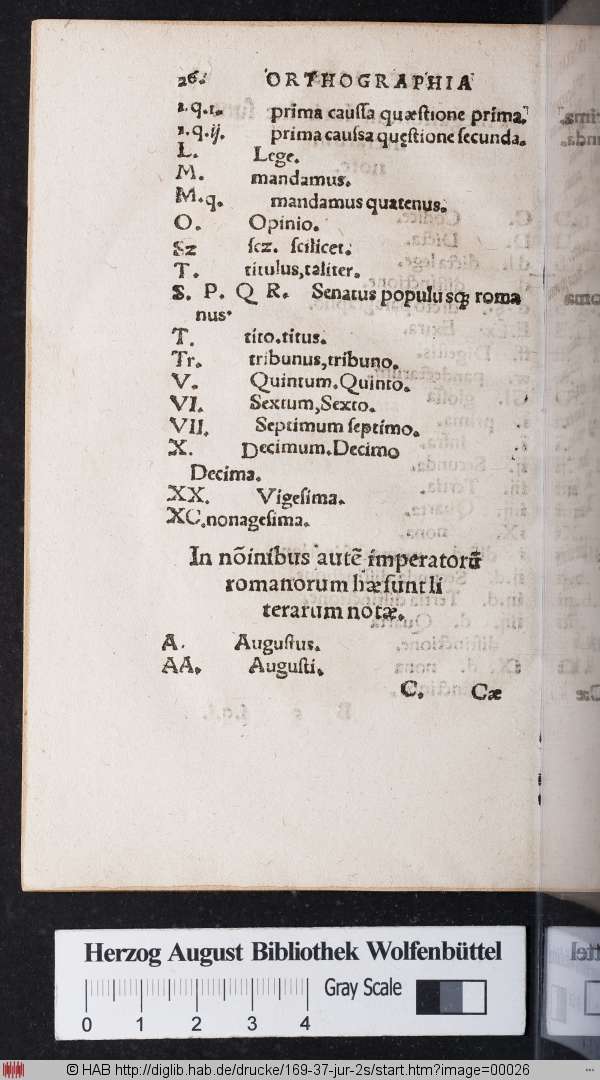 26. ORTHOGRAPHIA
1.q.1. prima caussa quæstione prima.
1.q.ij. prima caussa quęstione secunda.
L. Lege.
M. mandamus.
M.q. mandamus quatenus.
O. Opinio.
Sz scz. scilicet.
T. titulus, taliter.
S. P. Q R. Senatus populusqꝫ roma
nus.
T. tito. titus.
Tr. tribunus, tribuno.
V. Quintum. Quinto.
VI. Sextum, Sexto.
VII. Septimum septimo.
X. Decimum. Decimo
Decima.
XX. Vigesima.
XC. nonagesima.
In nōinibus autē imperatorū
romanorum hæ sunt li
terarum notæ.
A. Augustus.
AA. Augusti.
C. Cæ
Herzog August Bibliothek Wolfenbüttel
0 1 2 3 4 Gray Scale
© HAB http://diglib.hab.de/drucke/169-37-jur-2s/start.htm?image=00026